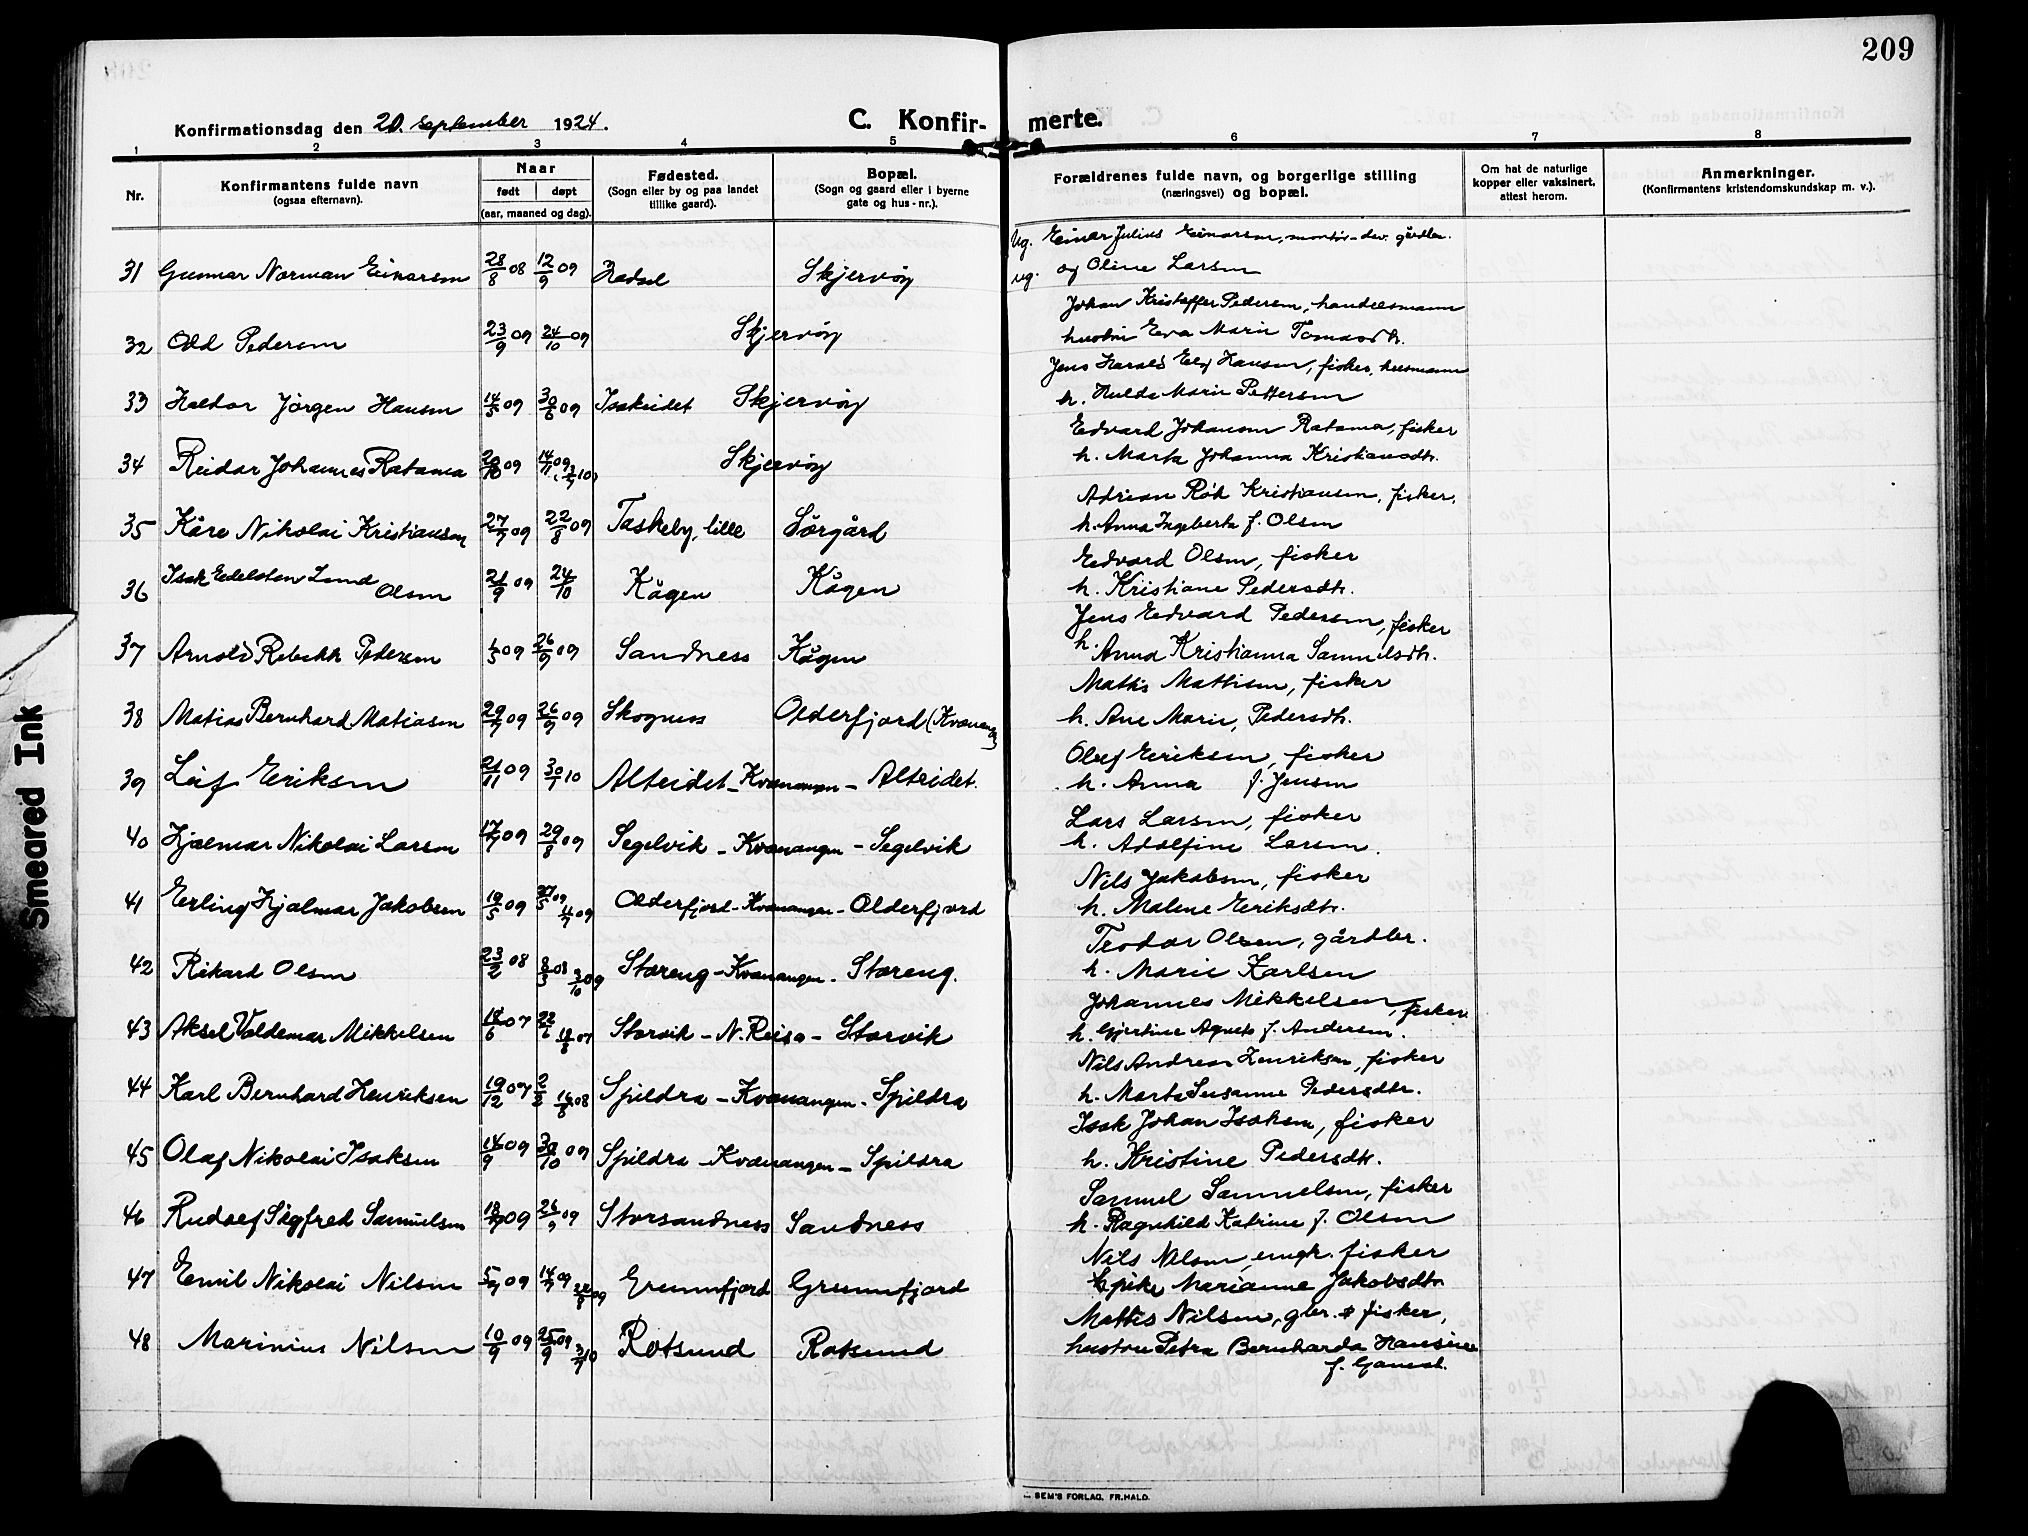 209
Konfirmationsdag den 20. september 1924.
C. Konfirmerte.
1 2 3 4 5 6 7 8
Nr.
Konfirmantens fulde navn
(ogsaa efternavn).
Naar
født døpt
(aar, maaned og dag).
Fødested.
(Sogn eller by og paa landet
tillike gaard).
Bopæl.
(Sogn og gaard eller i byerne
gate og hus-nr.).
Forældrenes fulde navn, og borgerlige stilling
(næringsvei) og bopæl.
Om hat de naturlige
kopper eller vaksinert,
attest herom.
Anmerkninger.
(Konfirmantens kristendomskundskap m. v.).
Ug. Einar Julius Einarsen, gårdbr.
31 Gunnar Norman Einarsen 28/8 08 12/9 09 Hadsel Skjervøy ug. og Oline Larsen
Johan Kristoffer Pedersen, handelsmann
32 Odd Pedersen 23/9 09 24/10 09 Skjervøy hustru Eva Marie Tomasdtr.
Jens Harald Hansen, fisker,
33 Haldor Jørgen Hansen 14/5 09 30/6 09 Isakeidet Skjervøy h. Hulda Marie Pettersen
Edvard Johansen Ratama, fisker
34 Reidar Johannes Ratama 20/10 09 14/11 09 Skjervøy h. Marta Johanna Kristiansdtr.
Adrian Røk Kristiansen, fisker.
35 Kåre Nikolai Kristiansen 27/7 09 22/8 09 Taskeby, lille Sørgård h. Anna Ingeberta f. Olsen
Edvard Olsen, fisker
36 Isak Edelsten Lund Olsen 21/9 09 24/10 Kågen Kågen h. Kristiane Pedersdtr.
Jens Edvard Pedersen, fisker
37 Arnold Rebekk Pedersen 1/5 09 26/9 09 Sandness Kågen h. Anna Kristianna Samuelsdtr.
Mathis Mattisen, fisker
38 Matias Bernhard Matiasen 29/7 09 26/9 09 Skogness Olderfjord (Kvænangen) h. Ane Marie, Pedersdtr.
Olaf Eriksen, fisker
39 Leif Eriksen 21/11 09 30/1 10 Alteidet - Kvænangen - Alteidet. h. Anna f. Jensen
Lars Larsen, fisker
40 Hjalmar Nikolai Larsen 17/7 09 29/8 09 Segelvik - Kvænangen - Segelvik h. Adolfine Larsen.
Nils Jakobsen, fisker
41 Erling Hjalmar Jakobsen 19/5 09 27/5 09 4/7 09 Olderfjord - Kvænangen - Olderfjord h. Malene Eriksdtr.
Teodor Olsen, gårdbr.
42 Rikard Olsen 23/2 08 8/3 08 3/10 09 Storeng - Kvænangen - Storeng. h. Marie Karlsen
Johannes Mikkelsen, fisker
43 Aksel Valdemar Mikkelsen 18/6 07 22/6 18/8 07 Storvik - N. Reisa - Storvik h. Gjertine Agnete f. Andersen.
Nils Andreas Henriksen, fisker
44 Karl Bernhard Henriksen 19/12 07 2/2 16/8 08 Spildra - Kvænangen - Spildra h. Marta Susanne Pedersdtr.
Isak Johan Isaksen, fisker
45 Olaf Nikolai Isaksen 14/9 09 30/10 09 Spildra - Kvænangen - Spildra h. Kristine Pedersdtr.
Samuel Samuelsen, fisker
46 Rudolf Sigfred Samuelsen 18/7 09 26/9 09 Storsandness Sandness h. Ragnhild Katrine f. Olsen
Nils Nilsen, ungk. fisker
47 Emil Nikolai Nilsen 5/7 09 14/7 09 22/8 09 Grunnfjord Grunnfjord & pike Marianne Jakobsdtr
Mattis Nilsen, gbr. & fisker,
48 Marinius Nilsen 10/9 09 25/9 09 3/7 10 Rotsund Rotsund hustru Petra Bernharda Hansine
SEM'S FORLAG, FR.HALD.
Smeared Ink